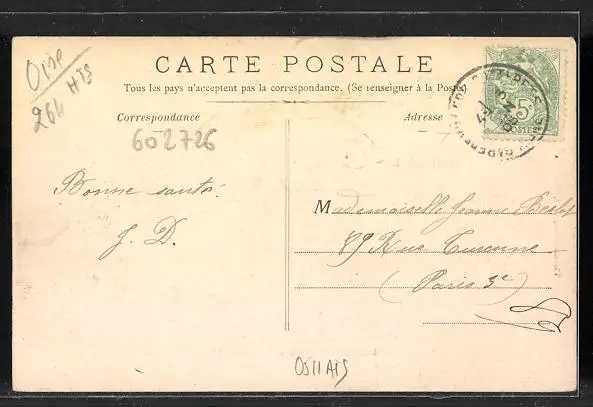 Oise
264 HTS
CARTE POSTALE
Tous les pays n'acceptent pas la correspondance. (Se renseigner à la Poste)
Correspondance
Adresse
602726
5c
POSTES
Bonne santé.
J. D.
Mademoiselle Jeanne
89 Rue Turenne
(Paris 3e)